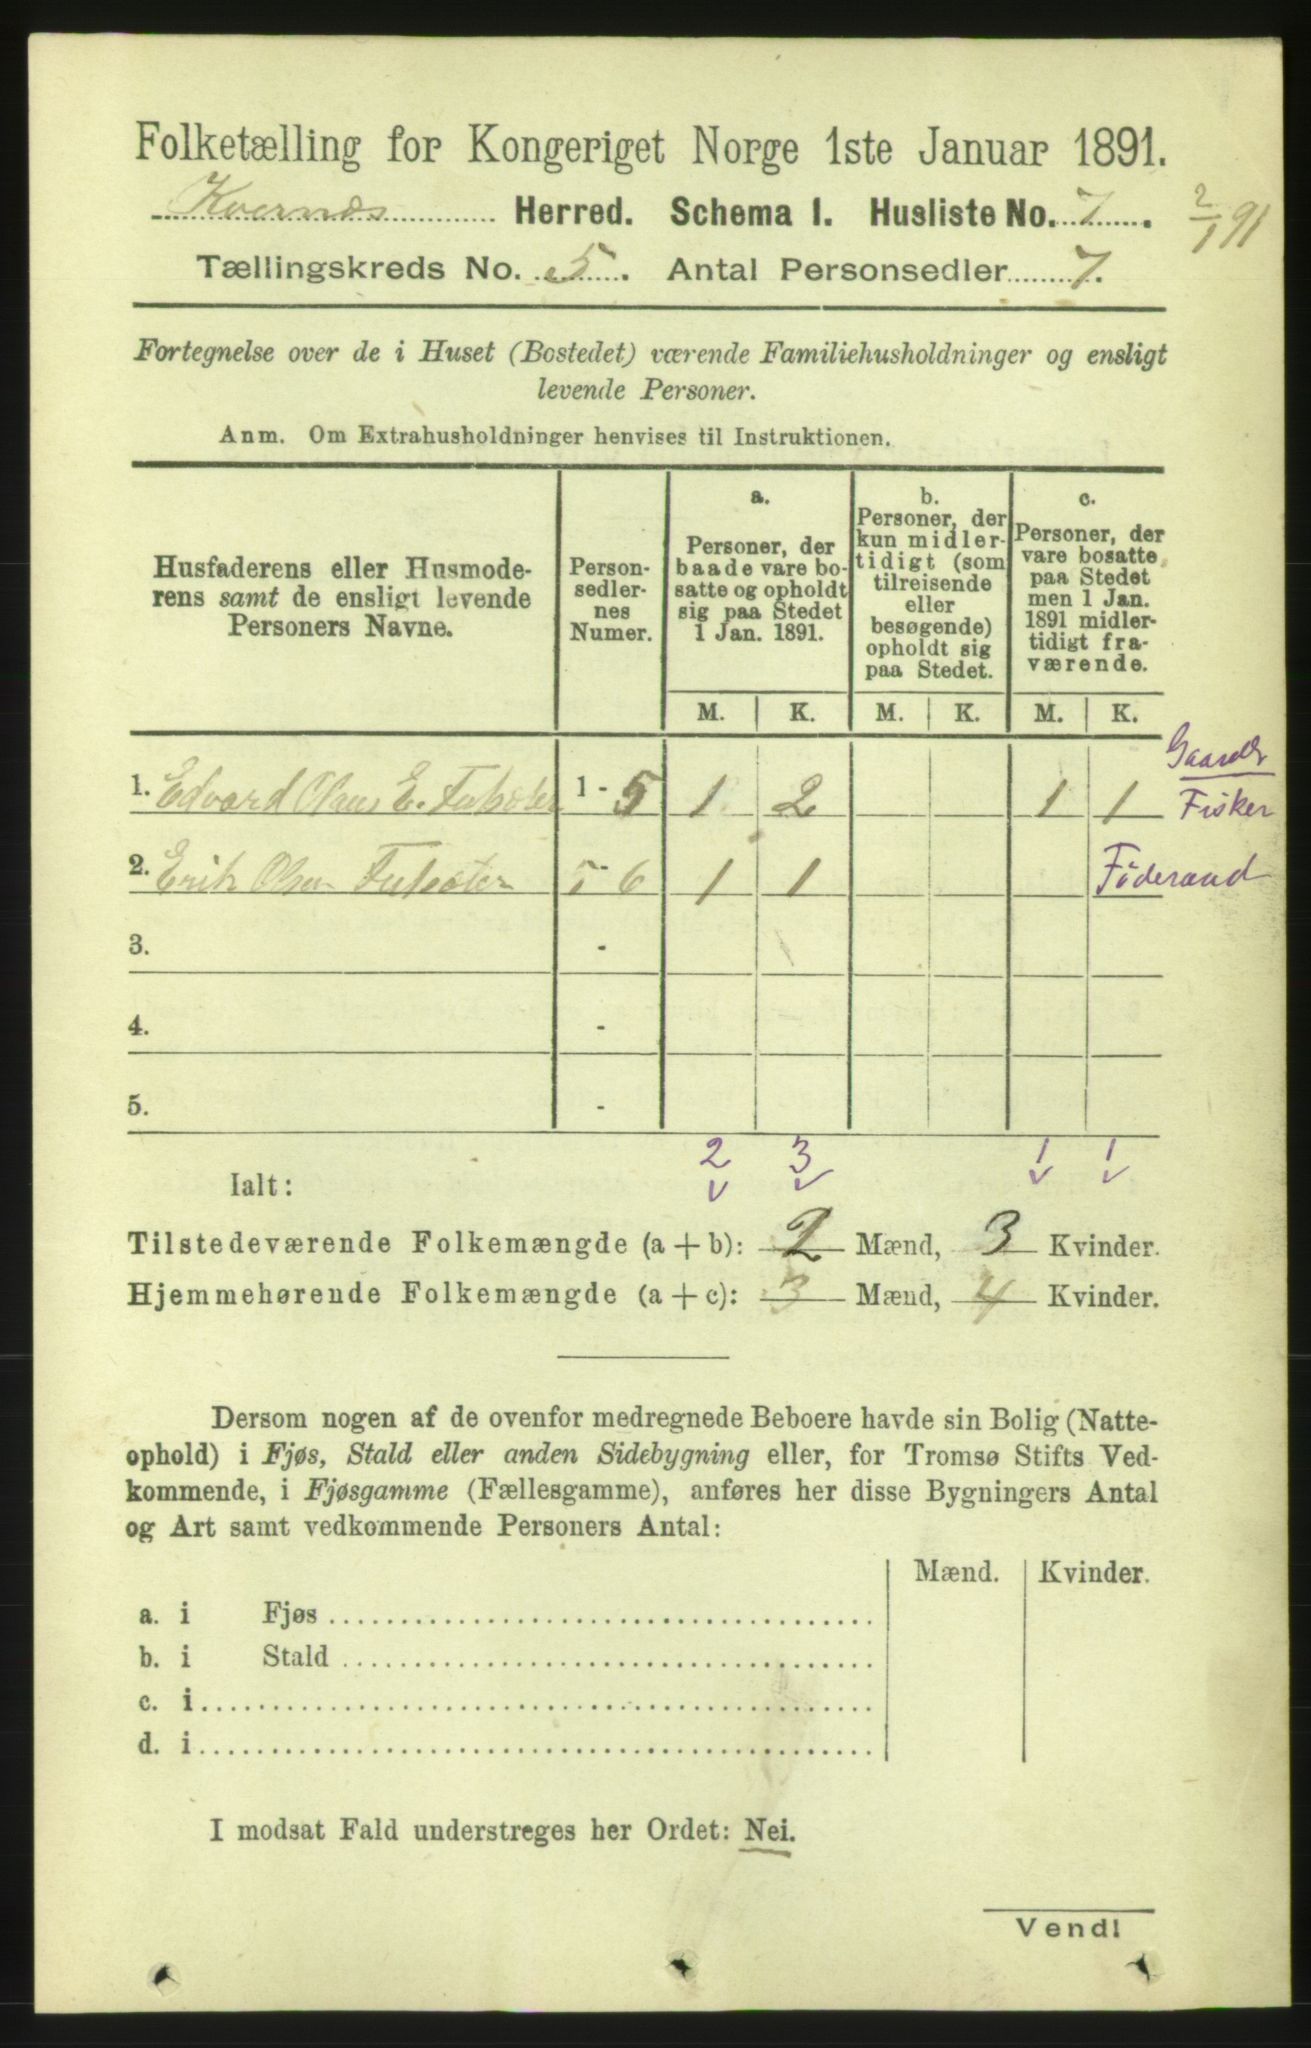 Folketælling for Kongeriget Norge 1ste Januar 1891.
Kvernæs Herred. Schema I. Husliste No. 7. 2/1 91
Tællingskreds No. 5. Antal Personsedler 7.
Fortegnelse over de i Huset (Bostedet) værende Familiehusholdninger og ensligt
levende Personer.
Anm. Om Extrahusholdninger henvises til Instruktionen.
Husfaderens eller Husmode-
rens samt de ensligt levende
Personers Navne.
Person-
sedler-
nes
Numer.
a.
Personer, der
baade vare bo-
satte og opholdt
sig paa Stedet
1 Jan. 1891.
b.
Personer, der
kun midler-
tidigt (som
tilreisende
eller
besøgende)
opholdt sig
paa Stedet.
c.
Personer, der
vare bosatte
paa Stedet
men 1 Jan.
1891 midler-
tidigt fra-
værende.
M. K. M. K. M. K.
1. Edvard Olaus E. 1 - 5 1 2 1 1 Gaardbr Fisker
2. Erik Olsen - 6 1 1 Føderaad
3. -
4. -
5. -
2 3 1 1
Ialt:
Tilstedeværende Folkemængde (a + b): 2 Mænd, 3 Kvinder.
Hjemmehørende Folkemængde (a + c): 3 Mænd, 4 Kvinder.
Dersom nogen af de ovenfor medregnede Beboere havde sin Bolig (Natte-
ophold) i Fjøs, Stald eller anden Sidebygning eller, for Tromsø Stifts Ved-
kommende, i Fjøsgamme (Fællesgamme), anføres her disse Bygningers Antal
og Art samt vedkommende Personers Antal:
Mænd. Kvinder.
a. i Fjøs
b. i Stald
c. i
d. i
I modsat Fald understreges her Ordet: Nei.
Vend!